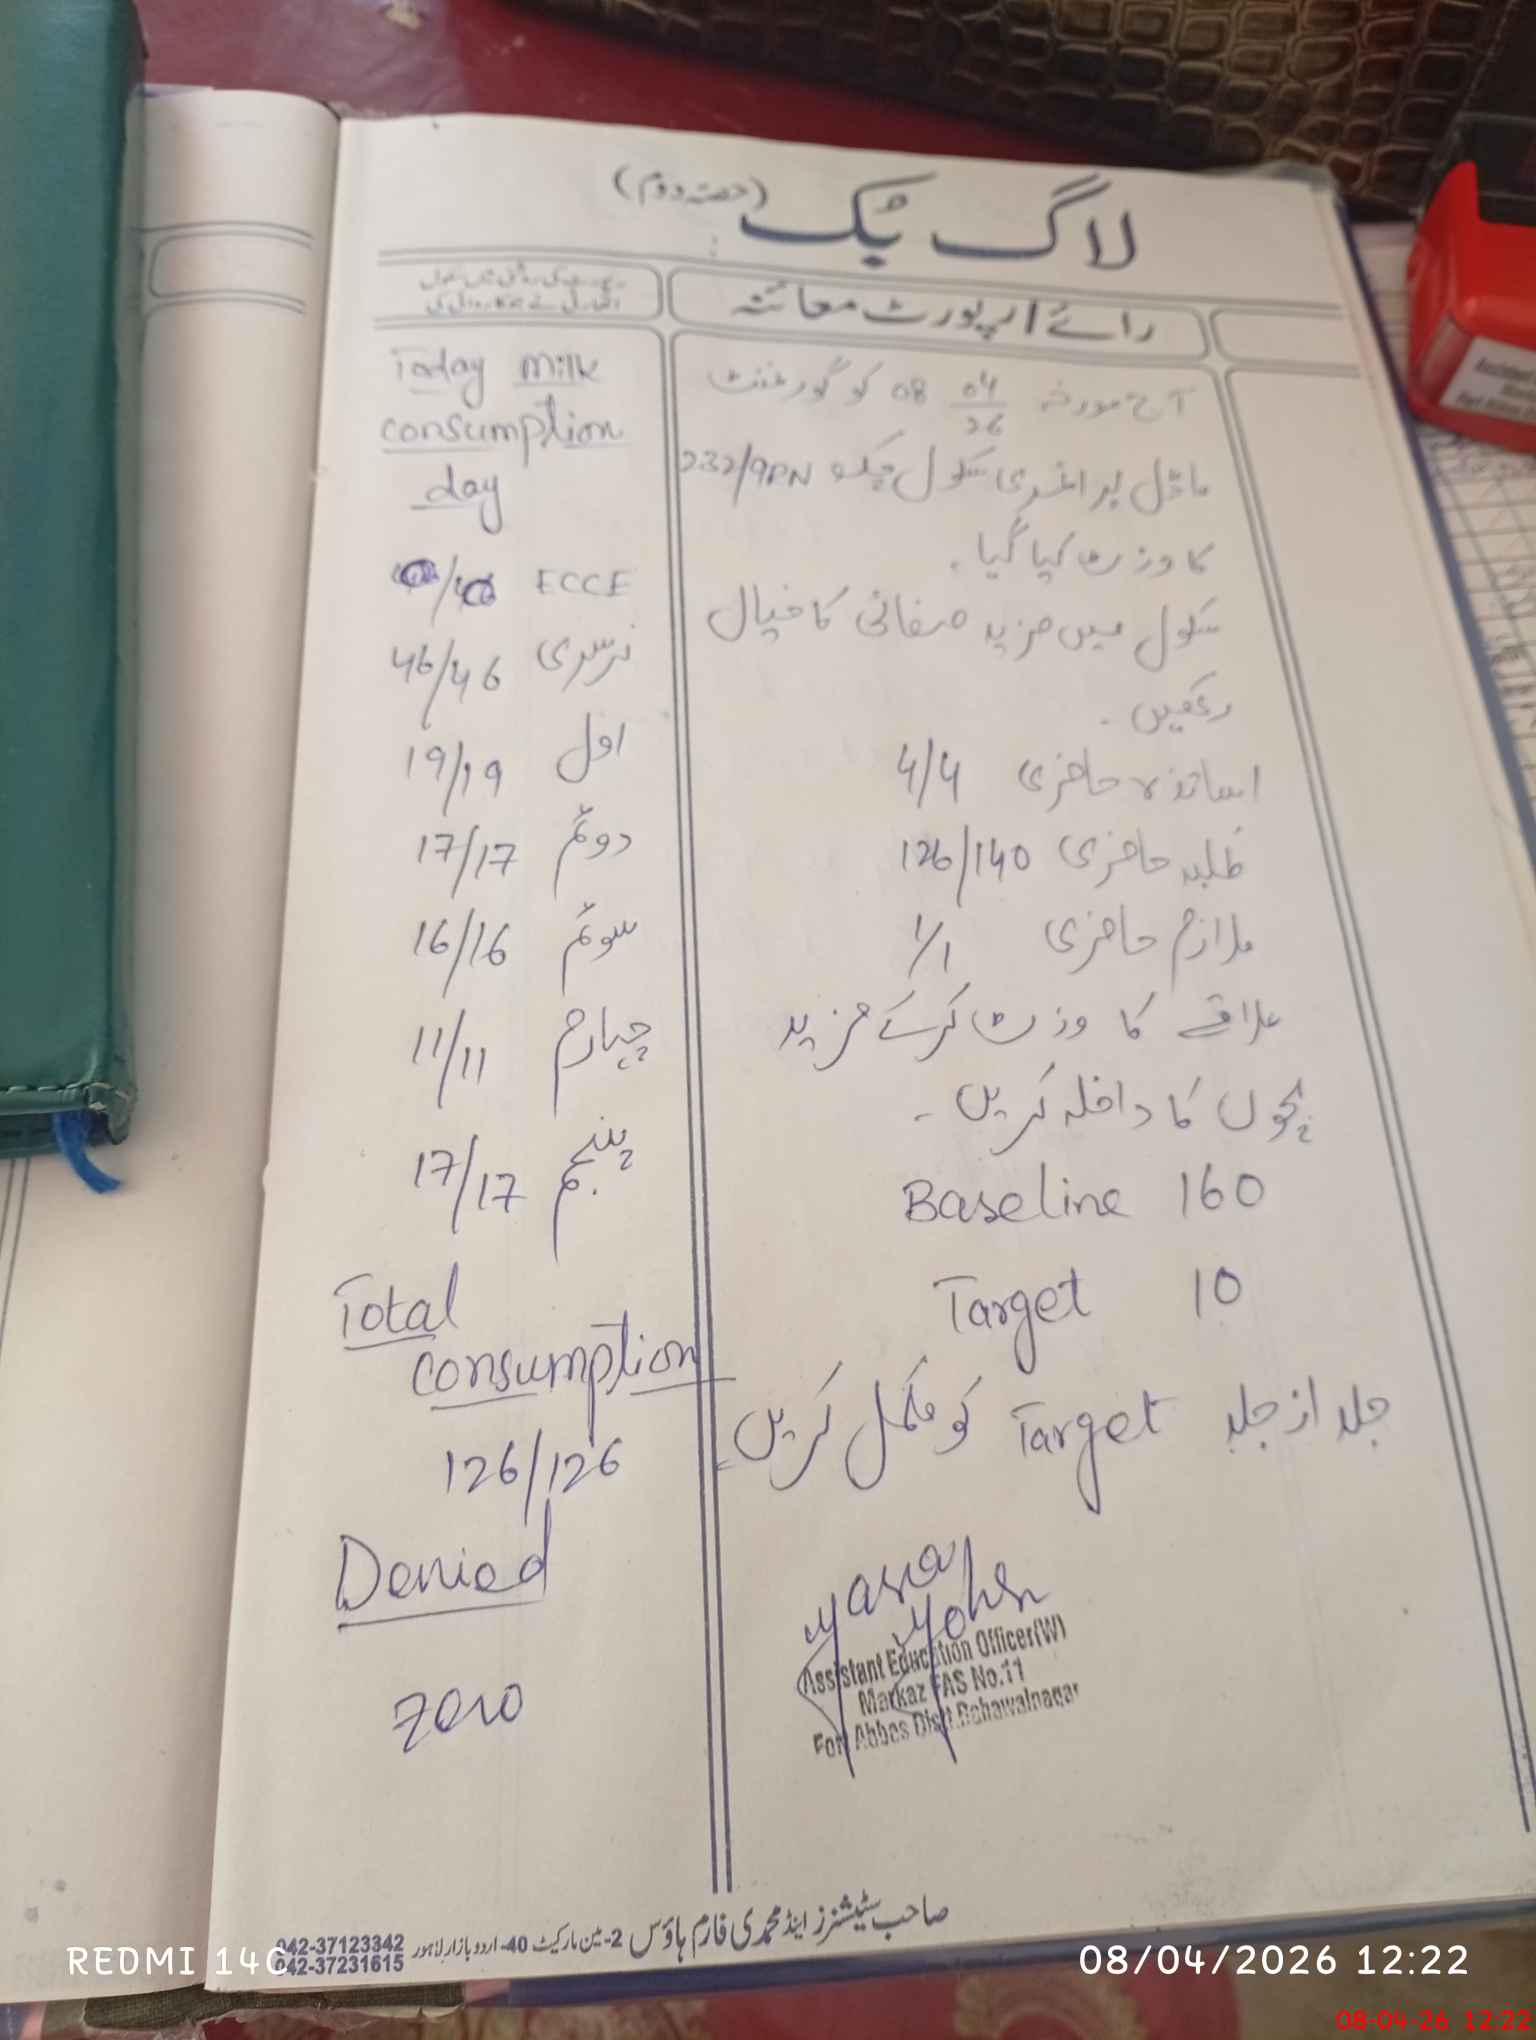 لاگ بک (حصہ دوم)
رائے / رپورٹ معائنہ
آج مورخہ 08 04/26 کو گورنمنٹ
ماڈل پرائمری سکول چک 232/9RN
کا وزٹ کیا گیا۔
سکول میں مزید صفائی کا خیال
رکھیں۔
اساتذہ حاضری 4/4
طلبہ حاضری 126/140
ملازم حاضری 1/1
علاقے کا وزٹ کر کے مزید
بچوں کا داخلہ کریں۔
Baseline 160
Target 10
جلد از جلد Target کو مکمل کریں۔
Assistant Education Officer(W)
Markaz FAS No.11
Fort Abbas Distt.Bahawalnagar
Today milk
consumption
day
ECCE
نرسری 46/46
اول 19/19
دوئم 17/17
سوئم 16/16
چہارم 11/11
پنجم 17/17
Total
consumption
126/126
Denied
zero
صاحب سٹیشنرز اینڈ محمدی فارم ہاؤس 2-مین مارکیٹ 40-اردو بازار لاہور 042-37123342
042-37231615
REDMI 14C
08/04/2026 12:22
08-04-26 12:22